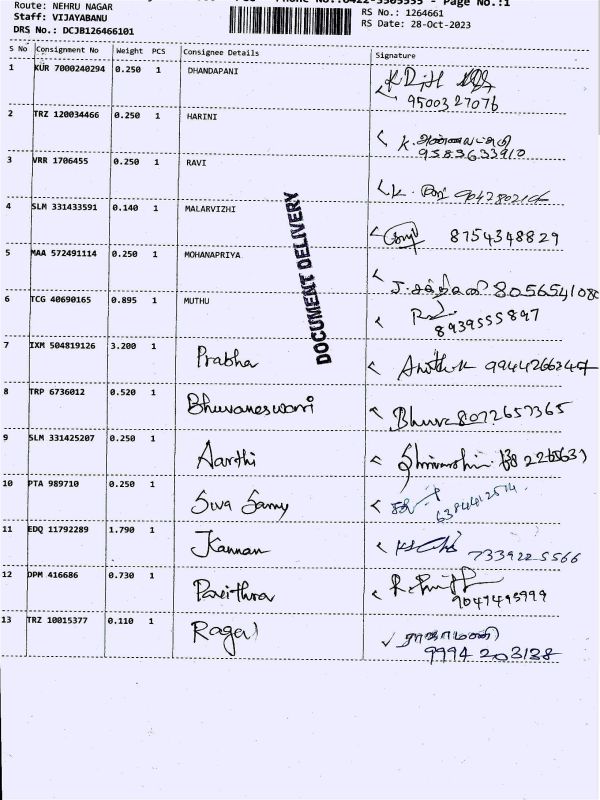 Phone No.:0422-3505555 - Page No.:1
Route: NEHRU NAGAR
Staff: VIJAYABANU
DRS No.: DCJB126466101
RS No.: 1264661
RS Date: 28-Oct-2023
S No Consignment No Weight PCS Consignee Details Signature
1 KUR 7000240294 0.250 1 DHANDAPANI
9500327076
2 TRZ 120034466 0.250 1 HARINI
K.
9585633910
3 VRR 1706455 0.250 1 RAVI
K.
4 SLM 331433591 0.140 1 MALARVIZHI
8754348829
5 MAA 572491114 0.250 1 MOHANAPRIYA
6 TCG 40690165 0.895 1 MUTHU
8939555897
DOCUMENT DELIVERY
7 IXM 504819126 3.200 1 Prabha
8 TRP 6736012 0.520 1 Bhuvaneswari Bhuva 8072657365
9 SLM 331425207 0.250 1 Aarthi
10 PTA 989710 0.250 1 Siva Samy
6384412514
11 EDQ 11792289 1.790 1 Kannan 7339225566
12 DPM 416686 0.730 1 Pavithra
9047495999
13 TRZ 10015377 0.110 1 Ragavi
9994 203138